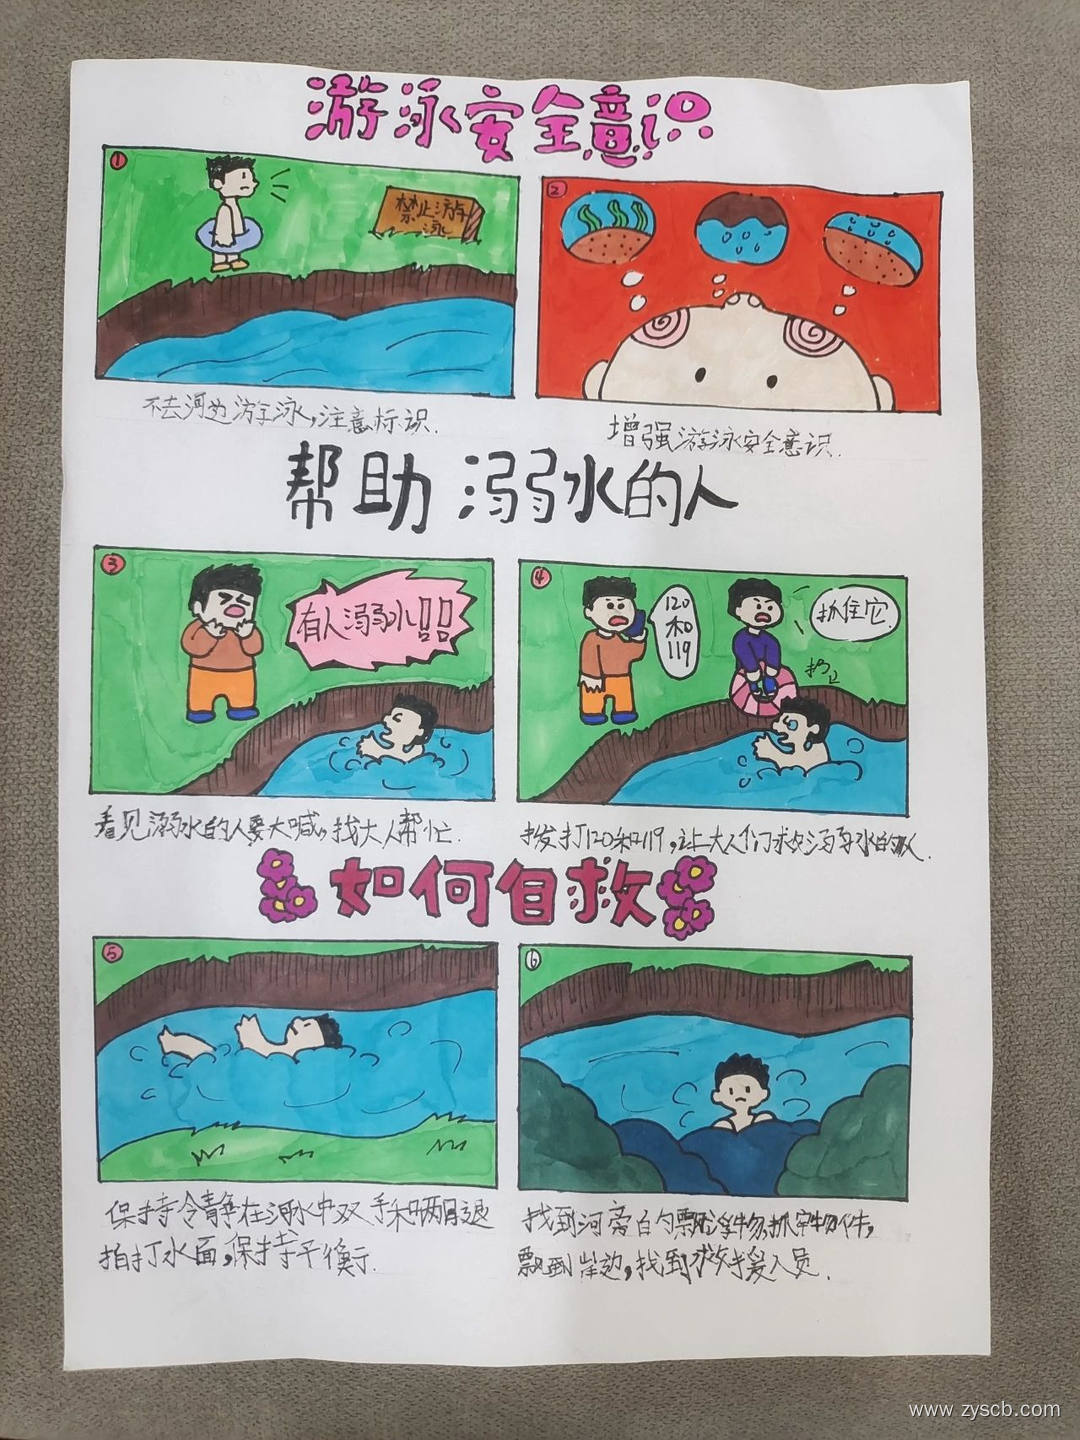 游泳安全意识
1
禁止游
泳
2
不去河边游泳,注意标识.
增强游泳安全意识.
帮助溺水的人
3
有人溺水!!!
4
120
和
119
抓住它
扔
看见溺水的人要大喊,找大人帮忙.
拨打120和119,让大人们求救溺水的人.
如何自救
5
6
保持冷静在河水中双手和两退
拍打水面,保持平衡.
找到河旁的飘浮物,抓牢物件,
飘到岸边,找到救援人员.
www.zyscb.com